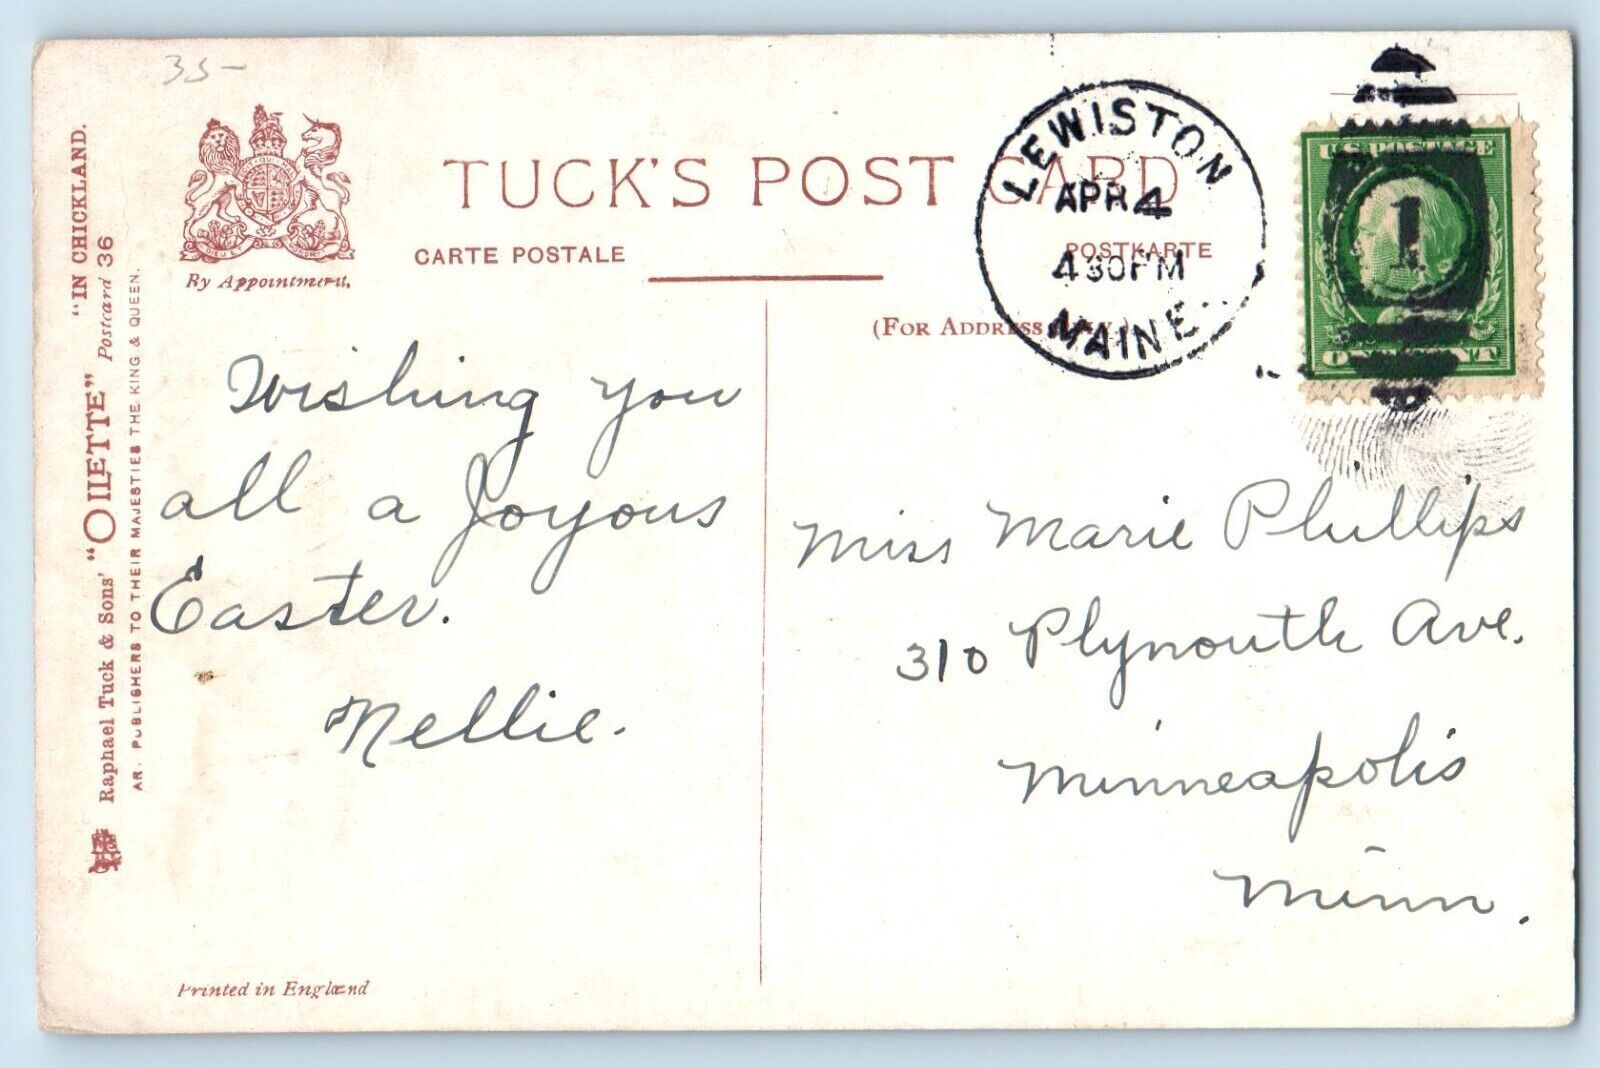 35-
"IN CHICKLAND.
Raphael Tuck & Sons' "OILETTE" Postcard 36
AR. PUBLISHERS TO THEIR MAJESTIES THE KING & QUEEN.
By Appointment.
TUCK'S POST CARD
CARTE POSTALE
POSTKARTE
(FOR ADDRESS ONLY.)
LEWISTON
APR 4
430PM
MAINE
U.S. POSTAGE
1
ONE CENT
Wishing you
all a Joyous
Easter.
Nellie.
Miss Marie Phillips
310 Plymouth Ave.
Minneapolis
Minn.
Printed in England